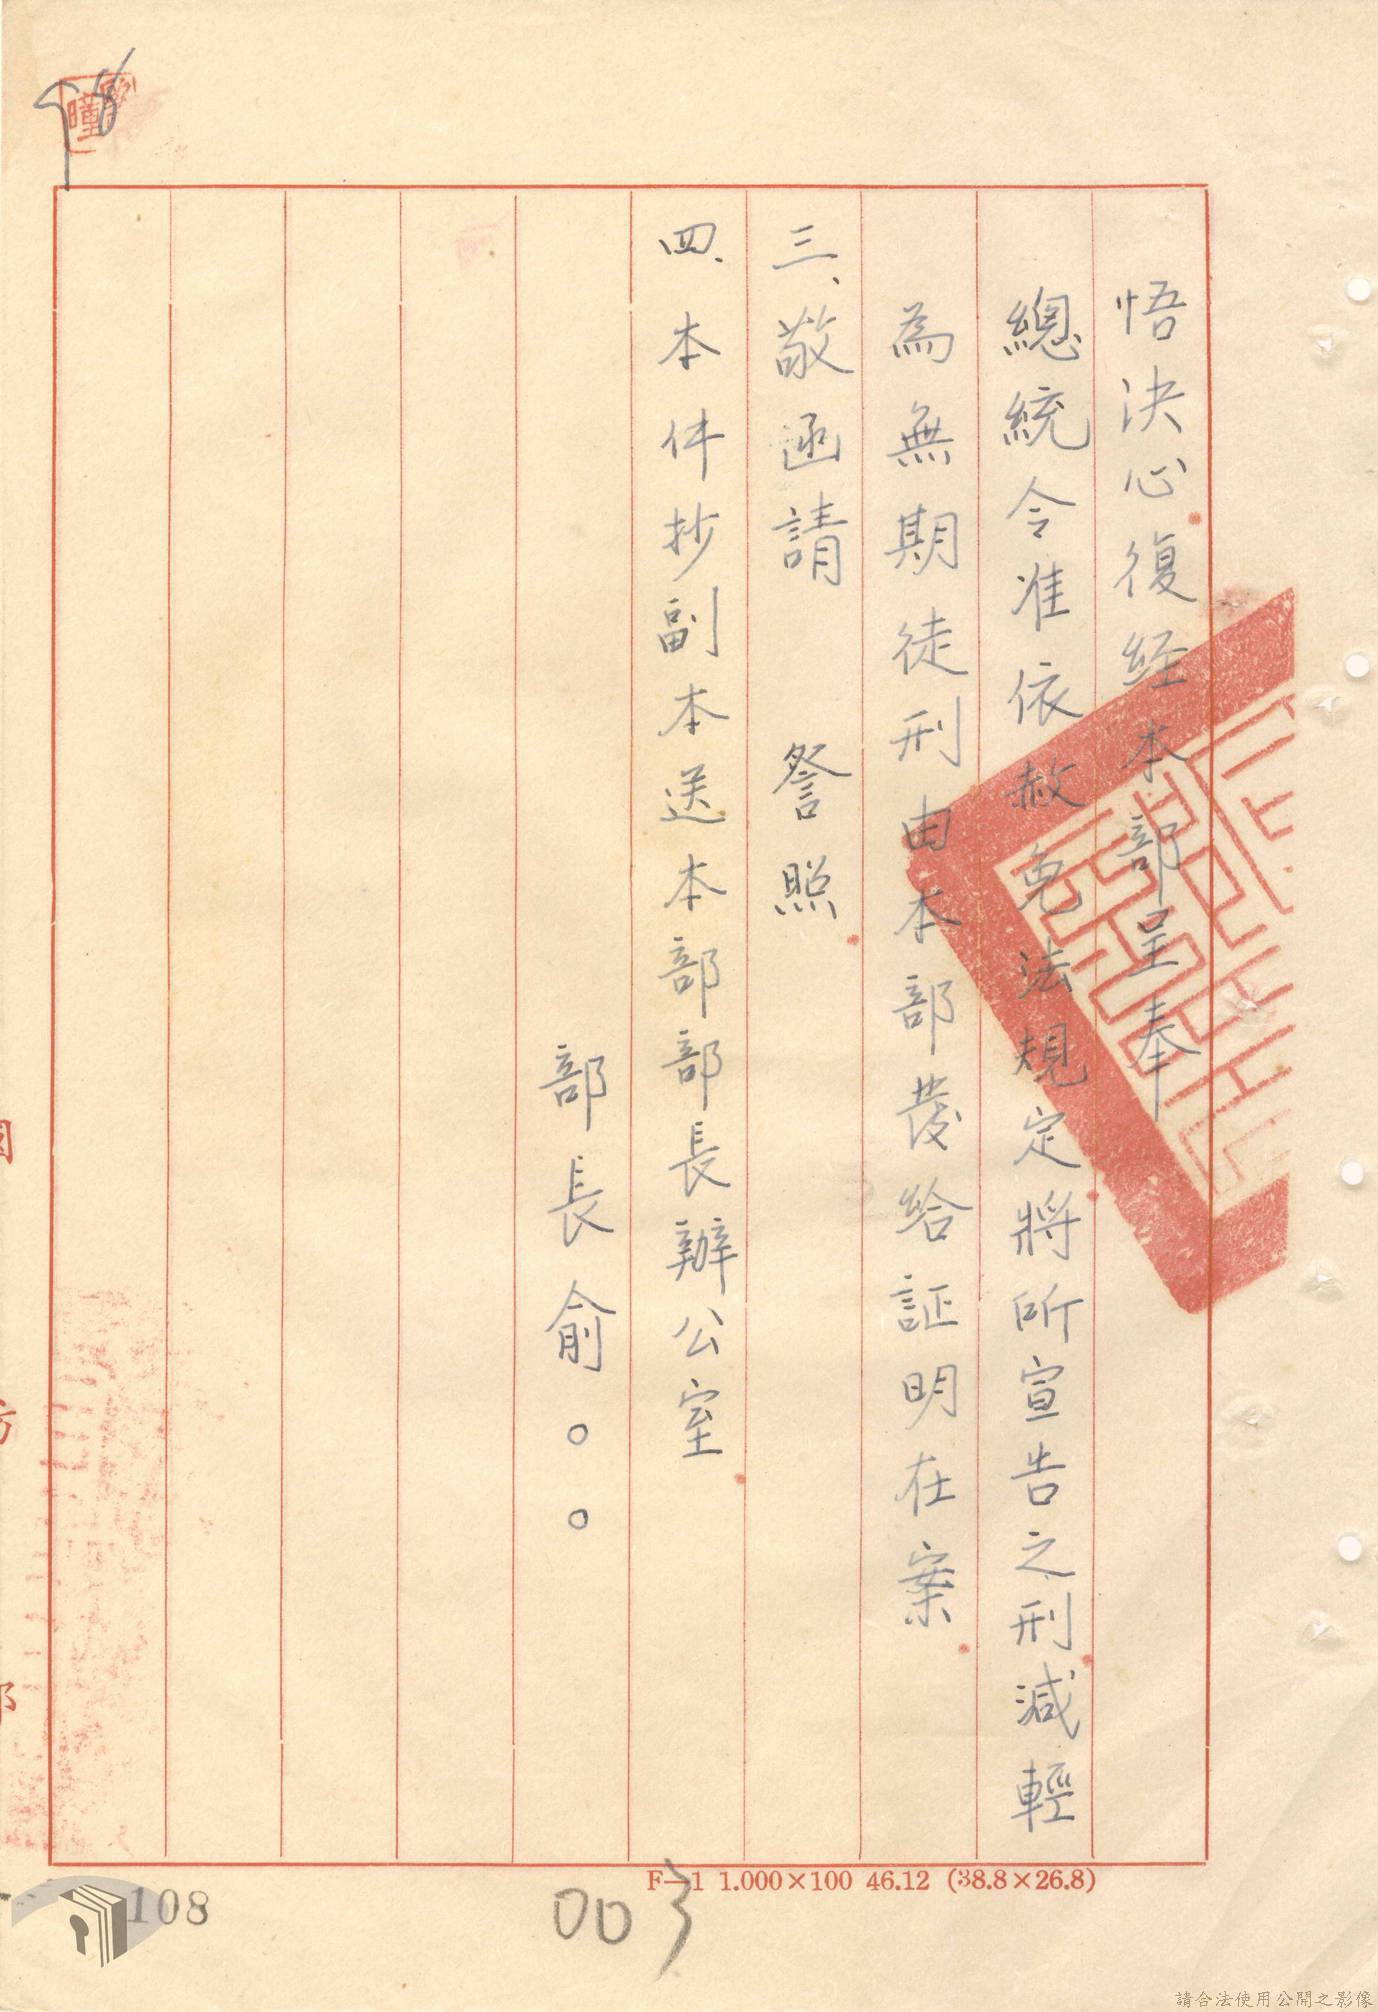 悟決心復経本部呈奉
總統令准依赦免法規定將所宣告之刑減輕
為無期徒刑由本部發給証明在案
三、敬函請　詧照
四、本件抄副本送本部部長辦公室
部長俞○○
F—1 1.000×100 46.12 (38.8×26.8)
003
108
請合法使用公開之影像